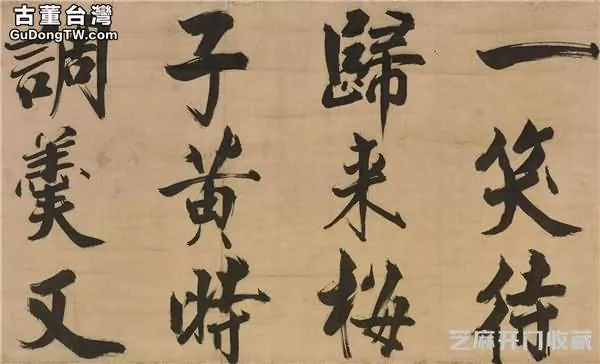 古董台灣
GuDongTW.com
一笑待
歸来梅
子黄時
調羹又
芝麻开门收藏